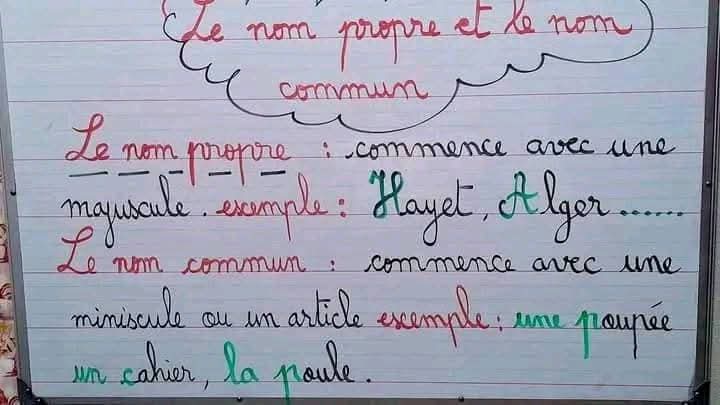 Le nom propre et le nom
commun
Le nom propre : commence avec une
majuscule. exemple : Hayet, Alger......
Le nom commun : commence avec une
miniscule ou un article exemple : une poupée
un cahier, la poule.